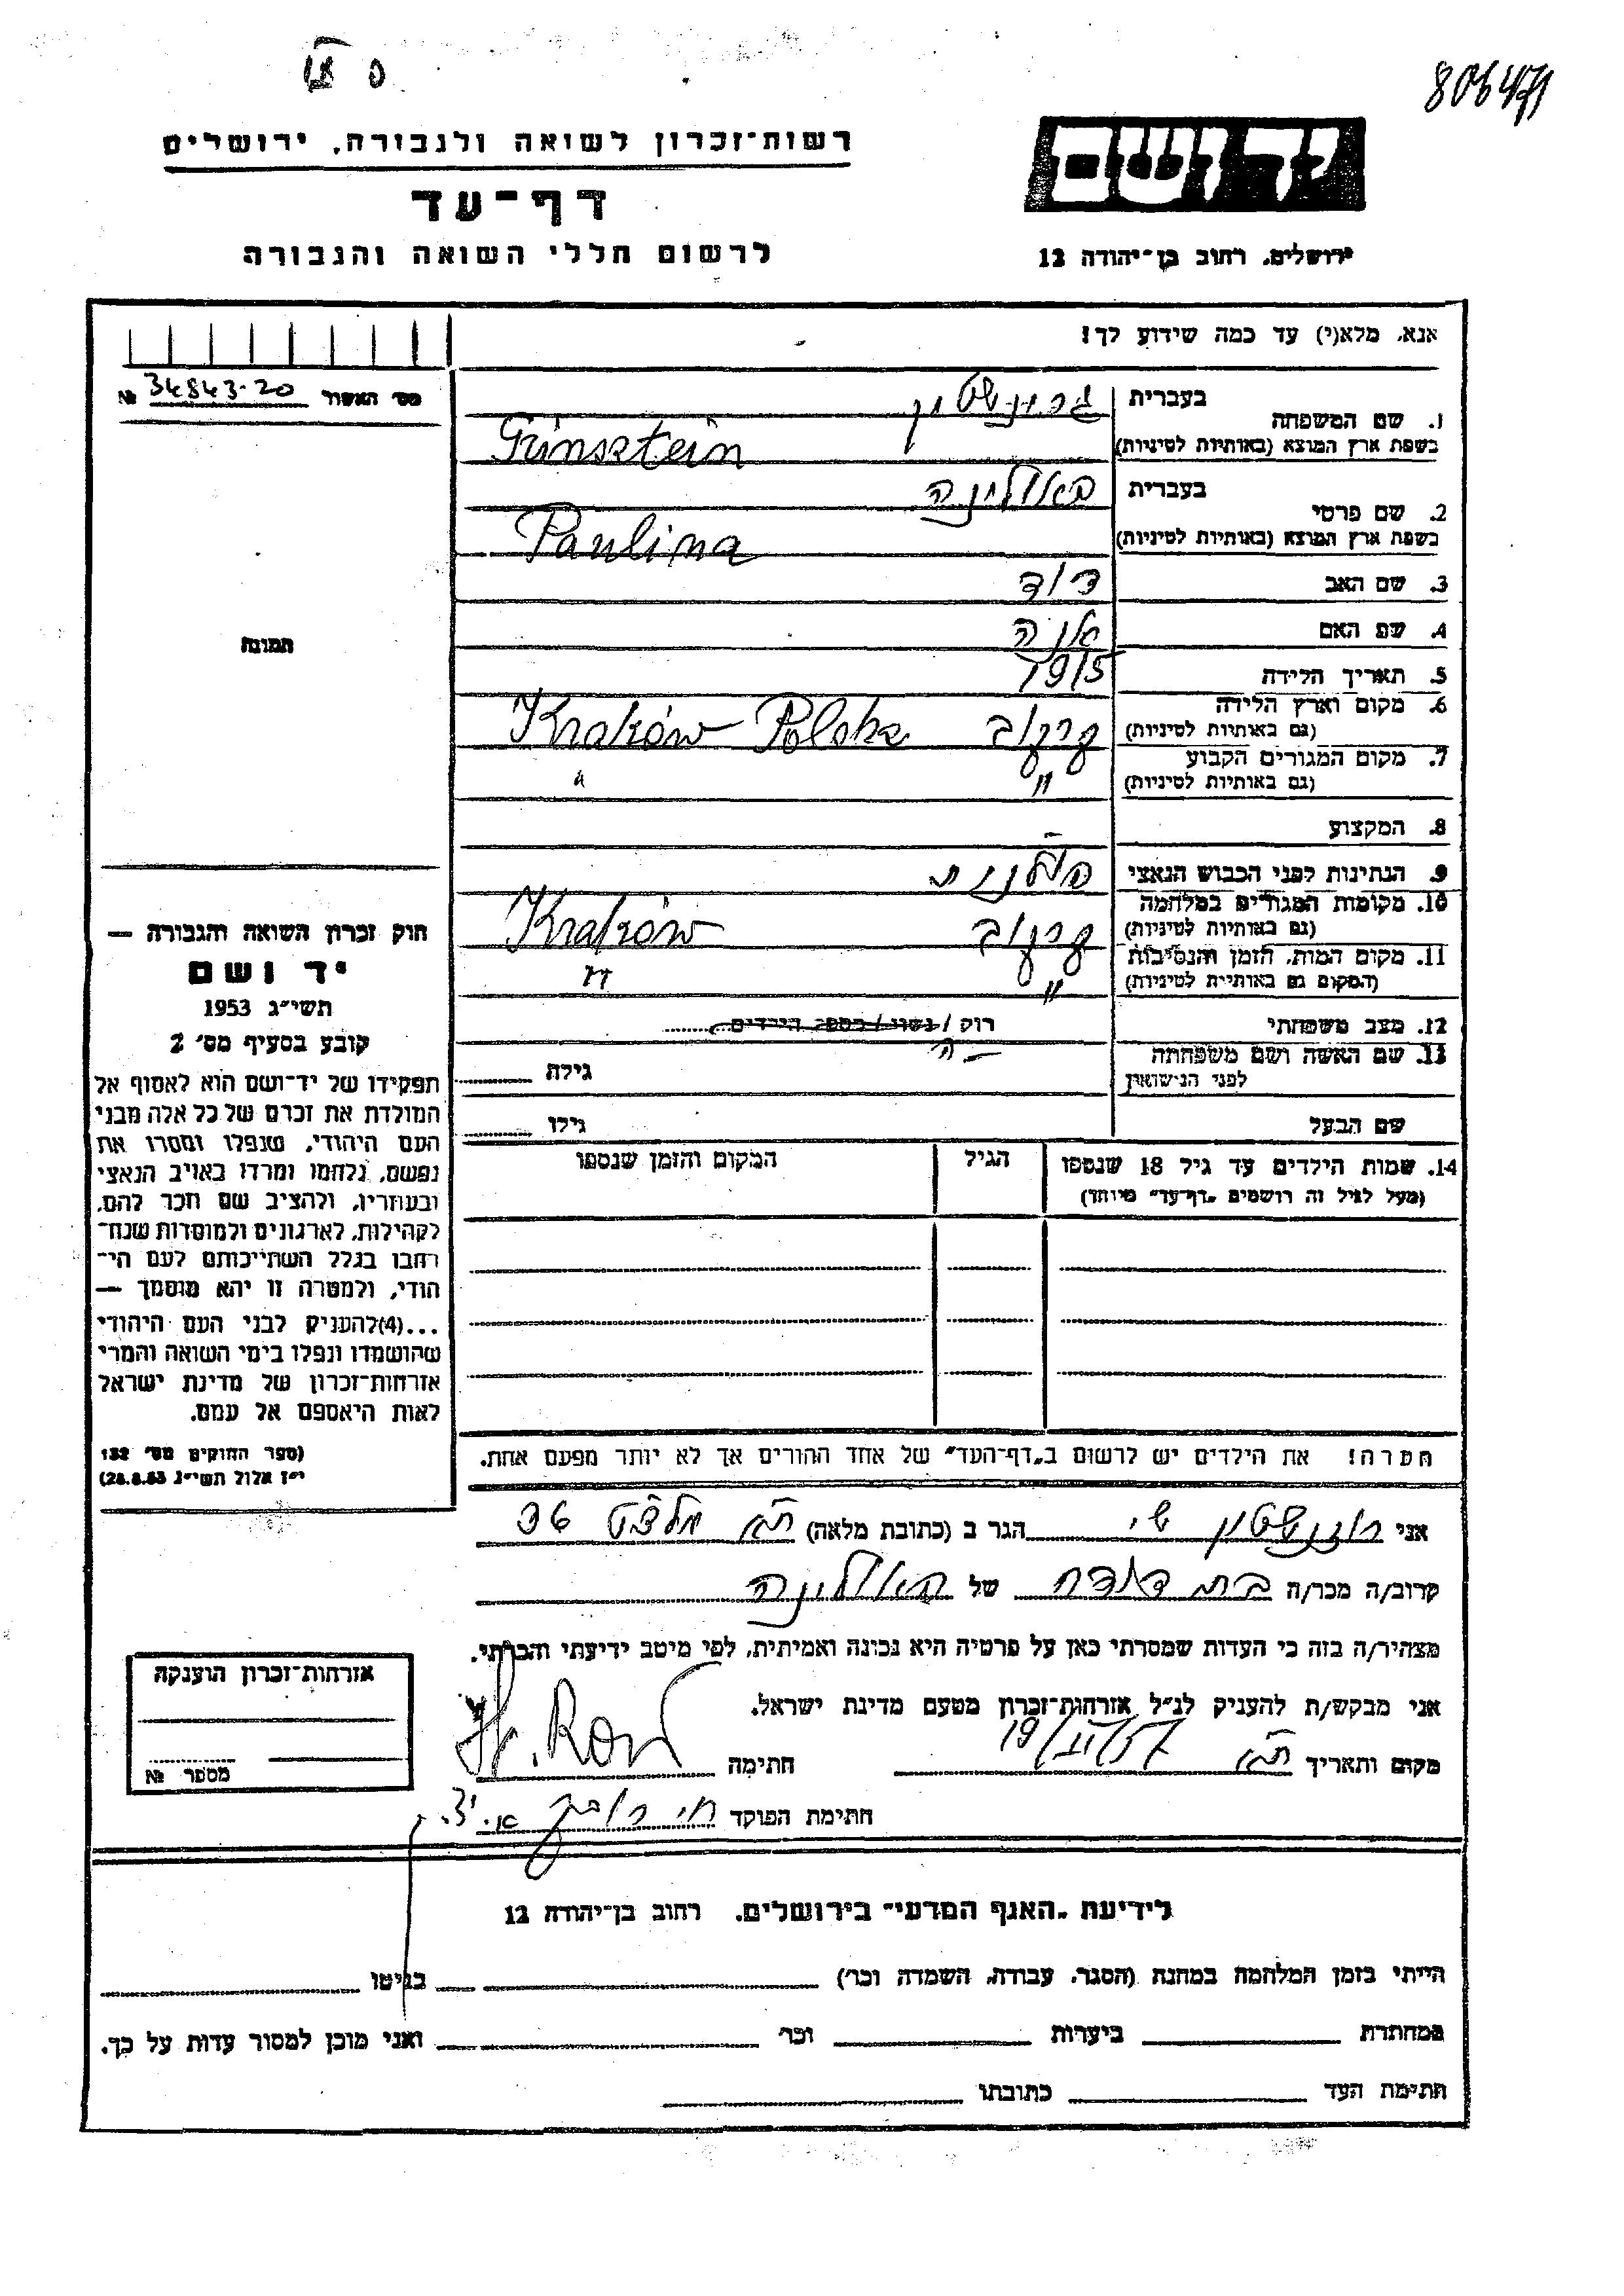 806471
רשות־זכרון לשואה ולגבורה, ירושלים
יד ושם
דף־עד
לרשום חללי השואה והגבורה
ירושלים, רחוב בן־יהודה 12
אנא, מלא(י) עד כמה שידוע לך!
מס׳ האשור 34843-20 №
1. שם המשפחה
בעברית גרונשטין
בשפת ארץ המוצא (באותיות לטיניות) Grinsztein
2. שם פרטי
בעברית פאולינה
בשפת ארץ המוצא (באותיות לטיניות) Paulina
3. שם האב דוד
4. שם האם
5. תאריך הלידה 1915
6. מקום וארץ הלידה
(גם באותיות לטיניות) קרקוב Kraków Polska
7. מקום המגורים הקבוע
(גם באותיות לטיניות) " "
8. המקצוע
9. הנתינות לפני הכבוש הנאצי פולנית
10. מקומות המגורים במלחמה
(גם באותיות לטיניות) קרקוב Kraków
11. מקום המות, הזמן והנסיבות
(המקום גם באותיות לטיניות) " "
12. מצב משפחתי רוק / נשוי / מספר הילדים
13. שם האשה ושם משפחתה
לפני הנישואין גילה
שם הבעל גילו
14. שמות הילדים עד גיל 18 שנספו הגיל המקום והזמן שנספו
(מעל לגיל זה רושמים „דף־עד" מיוחד)
תמונה
חוק זכרון השואה והגבורה —
יד ושם
תשי"ג 1953
קובע בסעיף מס׳ 2
תפקידו של יד־ושם הוא לאסוף אל
המולדת את זכרם של כל אלה מבני
העם היהודי, שנפלו ומסרו את
נפשם, נלחמו ומרדו באויב הנאצי
ובעוזריו, ולהציב שם וזכר להם,
לקהילות, לארגונים ולמוסדות שנח־
רבו בגלל השתייכותם לעם הי־
הודי, ולמטרה זו יהא מוסמך —
...(4)להעניק לבני העם היהודי
שהושמדו ונפלו בימי השואה והמרי
אזרחות־זכרון של מדינת ישראל
לאות היאספם אל עמם.
(ספר החוקים מס׳ 132
י"ז אלול תשי"ג 28.8.53)
הערה! את הילדים יש לרשום ב„דף־העד" של אחד ההורים אך לא יותר מפעם אחת.
אני רוזנשטין הגר ב (כתובת מלאה) ת"א 36
קרוב/ה מכר/ה בת דודה של פאולינה
מצהיר/ה בזה כי העדות שמסרתי כאן על פרטיה היא נכונה ואמיתית, לפי מיטב ידיעתי והכרתי.
אני מבקש/ת להעניק לנ"ל אזרחות־זכרון מטעם מדינת ישראל.
מקום ותאריך ת"א 19/VI/57 חתימה
חתימת הפוקד
אזרחות־זכרון הוענקה
מספר №
לידיעת „האגף המדעי" בירושלים, רחוב בן־יהודה 12
הייתי בזמן המלחמה במחנה (הסגר, עבודה, השמדה וכו׳) בגיטו
במחתרת ביערות וכו׳ ואני מוכן למסור עדות על כך.
חתימת העד כתובתו